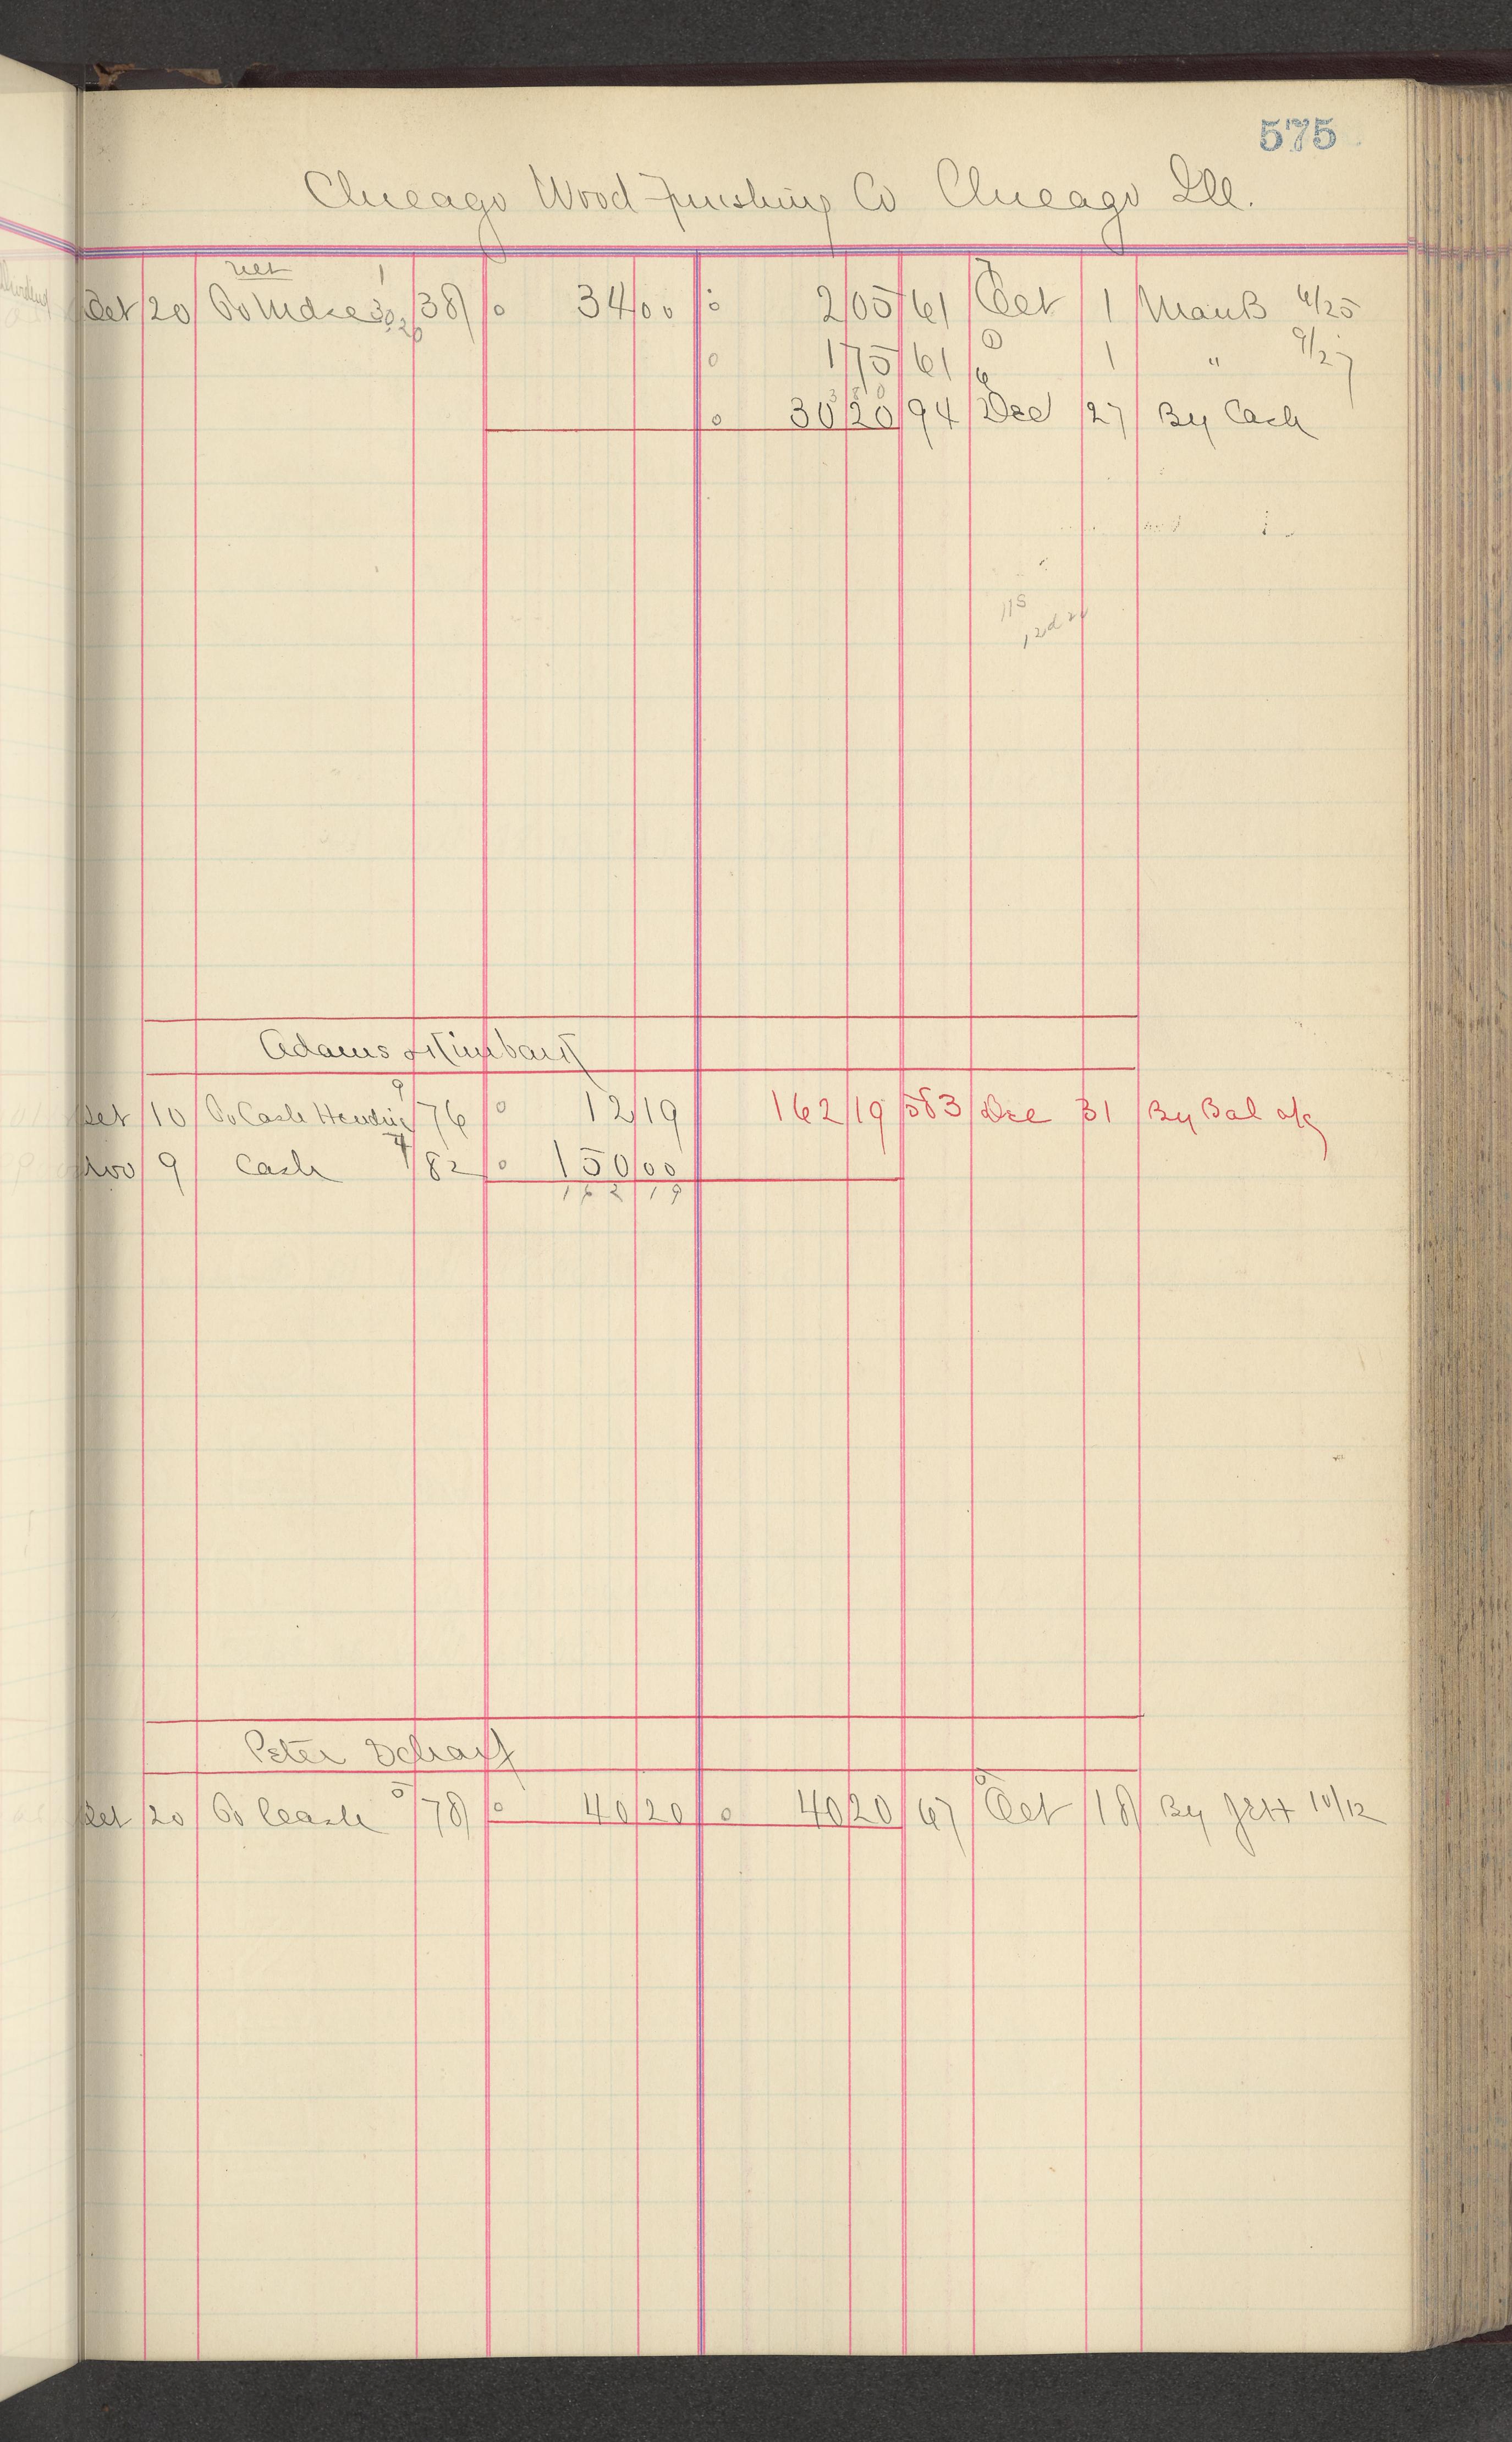 575
Chicago Wood Finishing Co Chicago Ill.
net 1
Oct 20 To Mdse 30, 20 38 0 34 00 0 2 05 61 Oct 1 Manls 9/25
0 1 75 61 1 " 9/27
0 30 20 94 Dec 27 By Cash
115
Adams &
9
Oct 10 To Cash 76 0 12 19 162 19 583 Dec 31 By Bal a/c
Nov 9 Cash 82 0 150 00
162 19
Peter Scharf
5
Oct 20 To Cash 78 0 40 20 0 40 20 67 Oct 18 By 10/12